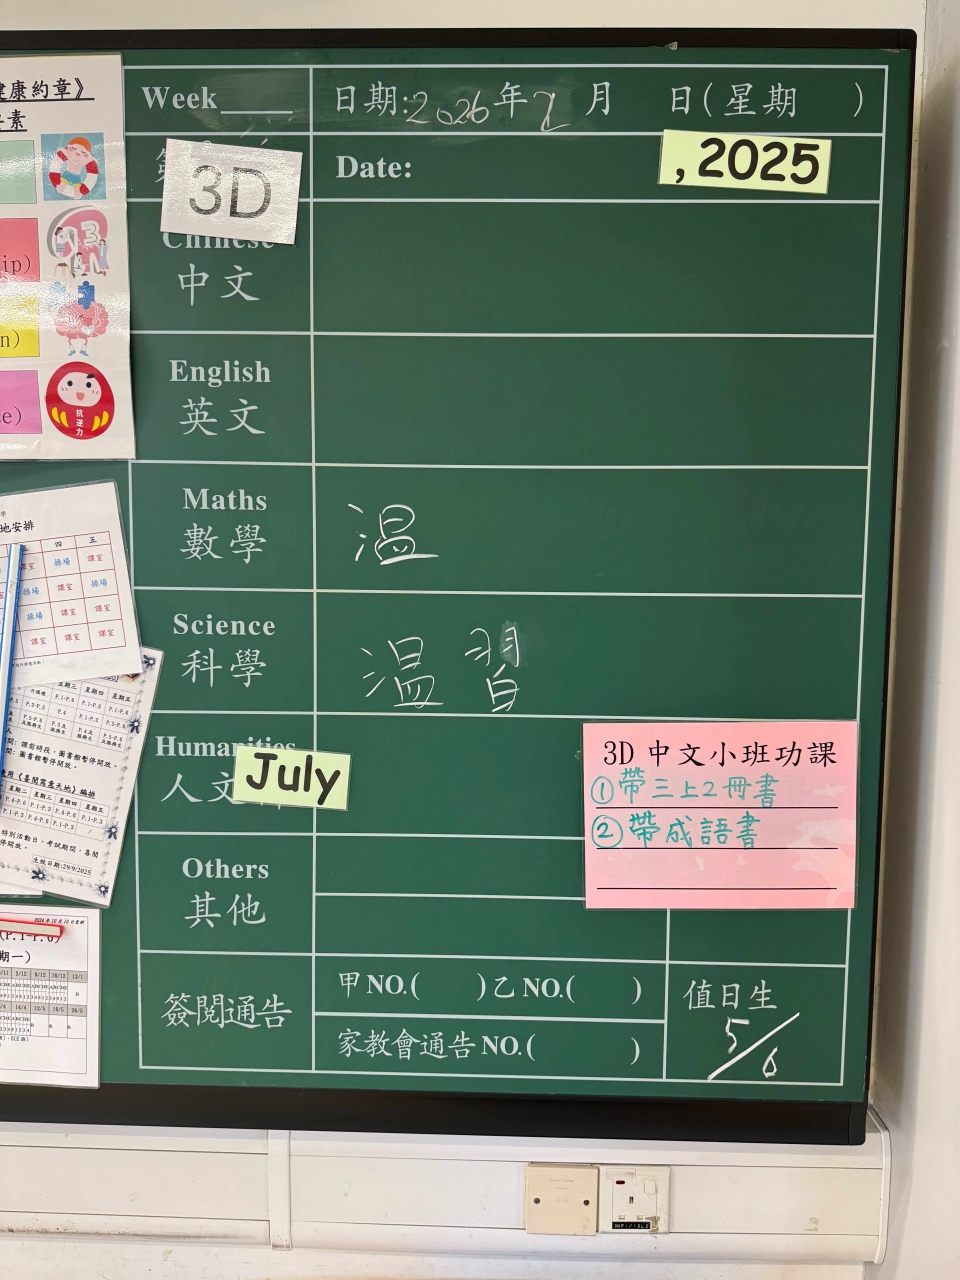 健康約章》
素
ip)
n)
ce)
抗逆力
地安排
四 五
課室 操場 課室
操場 課室 操場
操場 課室 課室
課室 課室 課室
星期三 星期四 星期五
開: 課前時段，圖書館暫停開放。
間: 圖書館暫停開放。
使用《喜閱寫意天地》編排
星期二 星期三 星期四 星期五
特別活動日、考試期間，喜閱
停開放。
生效日期:29/9/2025
2024年10月10日更新
(P.1-P.6)
期一)
Week
日期:2026年2月 日(星期 )
3D
Date:
, 2025
Chinese
中文
English
英文
Maths
數學
温
Science
科學
温習
Humanities
人文
July
3D 中文小班功課
①帶三上2冊書
②帶成語書
Others
其他
簽閱通告
甲NO.( )乙NO.( )
家教會通告NO.( )
值日生
5/6